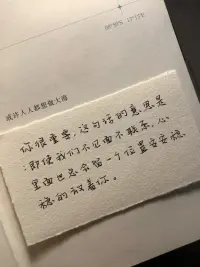 或许人人都想做大海
你很重要,这句话的意思是
:即使我们不见面不联系,心
里面也总会留一个位置安安稳
稳的放着你。